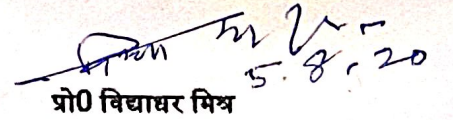 5.8.20
प्रो0 विद्याधर मिश्र